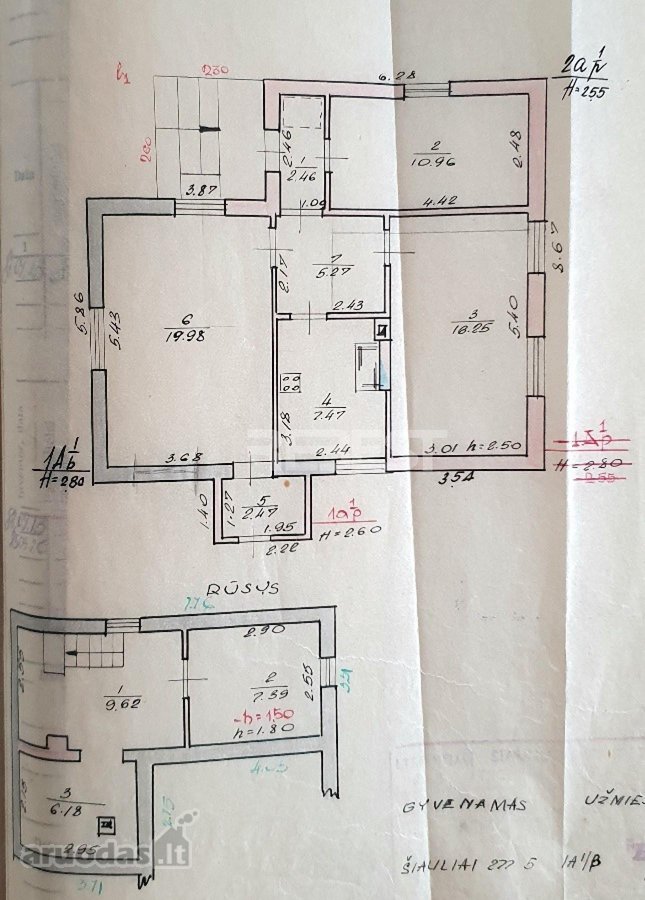 1 230
6.28
2a 1/p
H=255
200
2.46
1
2.46
2
10.96
2.48
3.87
1.09
4.42
7
5.27
2.17
2.43
8.67
5.86
5.43
6
19.98
3
16.25
5.40
4
7.47
3.18
1A 1/b
H=2.80
3.68
2.44
3.01 h=2.50
H=2.80
2.55
3.54
1.40
1.27
5
2.47
1.95
2.22
1a 1/p
H=2.60
RŪSYS
7.76
2.90
1
9.62
2
7.39
2.55
-h=1.50
h=1.80
3
6.18
2.95
GYVENAMAS UŽNIE
ŠIAULIAI 277 5 1A1/B
aruodas.lt